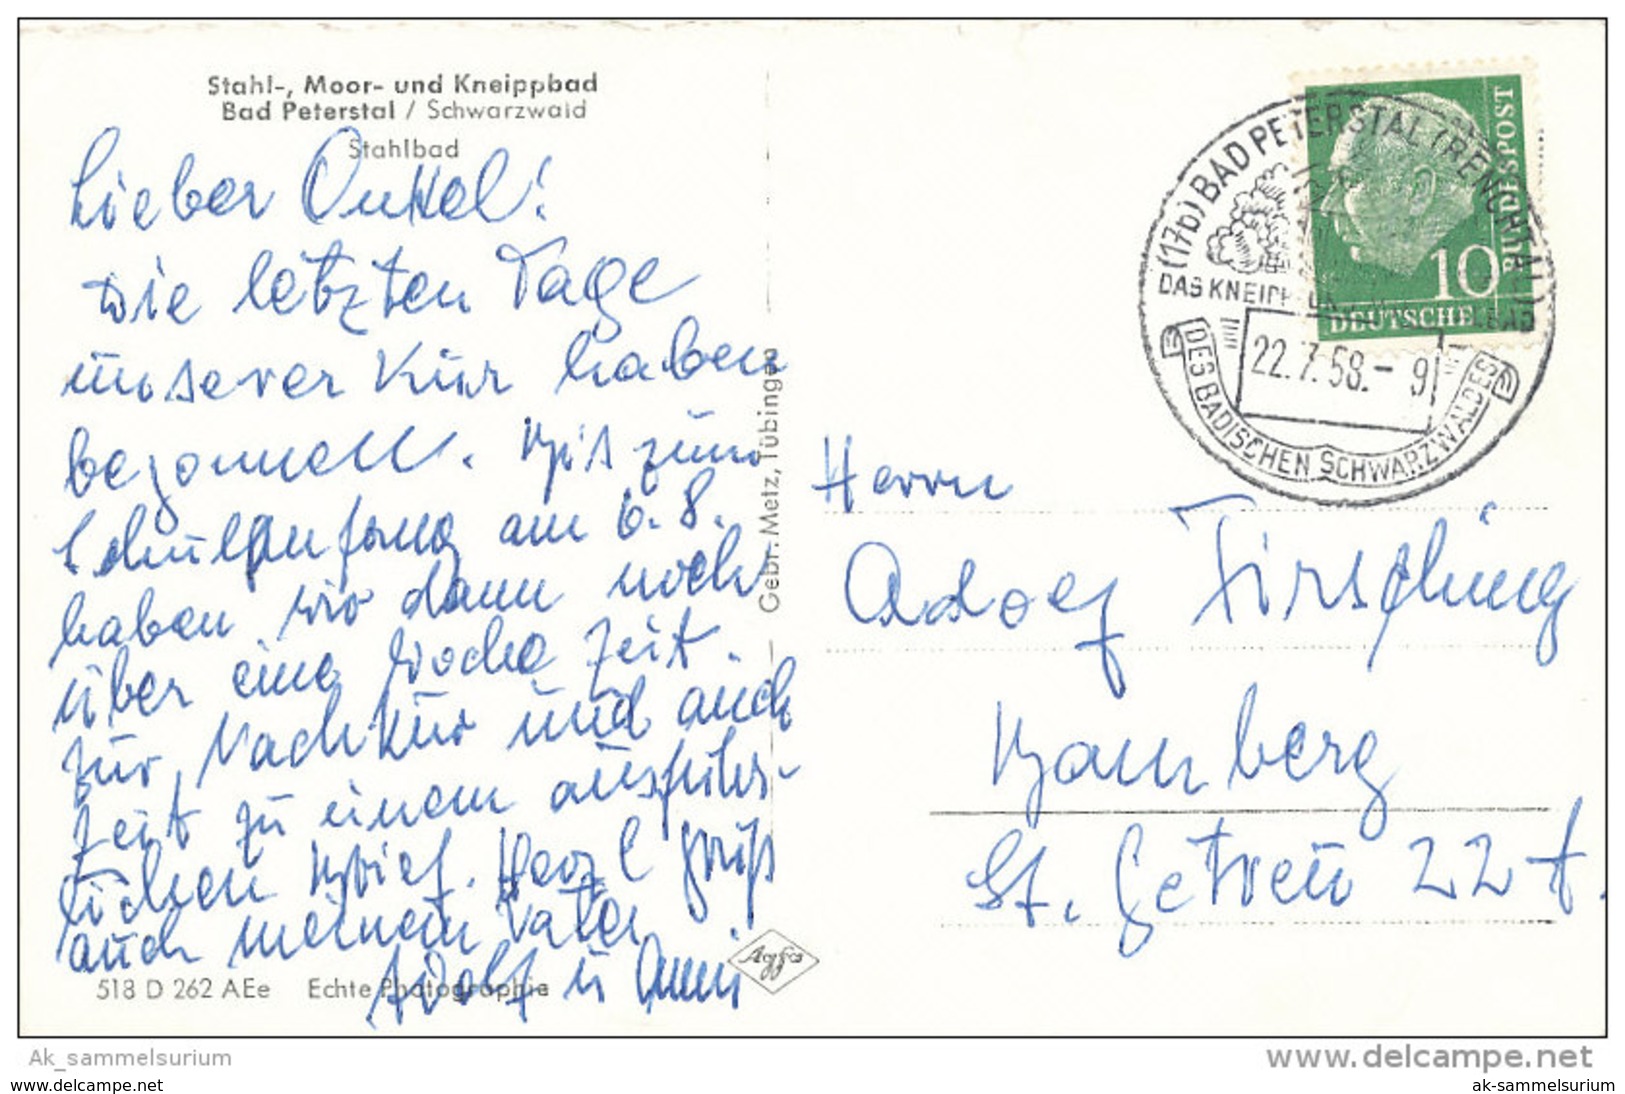 Stahl-, Moor- und Kneippbad
Bad Peterstal / Schwarzwald
Stahlbad
Lieber Onkel!
Die letzten Tage
unserer Kur haben
begonnen. Bis zum
Schulanfang am 6.8.
haben wir dann noch
über eine Woche Zeit
zur Nachkur und auch
Zeit zu einem ausführ-
lichen Brief. Herzl Grüß
auch meinem Vater
Adolf u Anni
518 D 262 AEe Echte Photographie
Gebr. Metz, Tübingen
Agfa
(17b) BAD PETERSTAL (RENCHTAL)
DAS KNEIPP- UND
22.7.58.-9
DES BADISCHEN SCHWARZWALDES
DEUTSCHE
BUNDESPOST
10
Herrn
Adolf Firsching
Bamberg
St. Getreu 22
Ak_sammelsurium
www.delcampe.net
www.delcampe.net
ak-sammelsurium